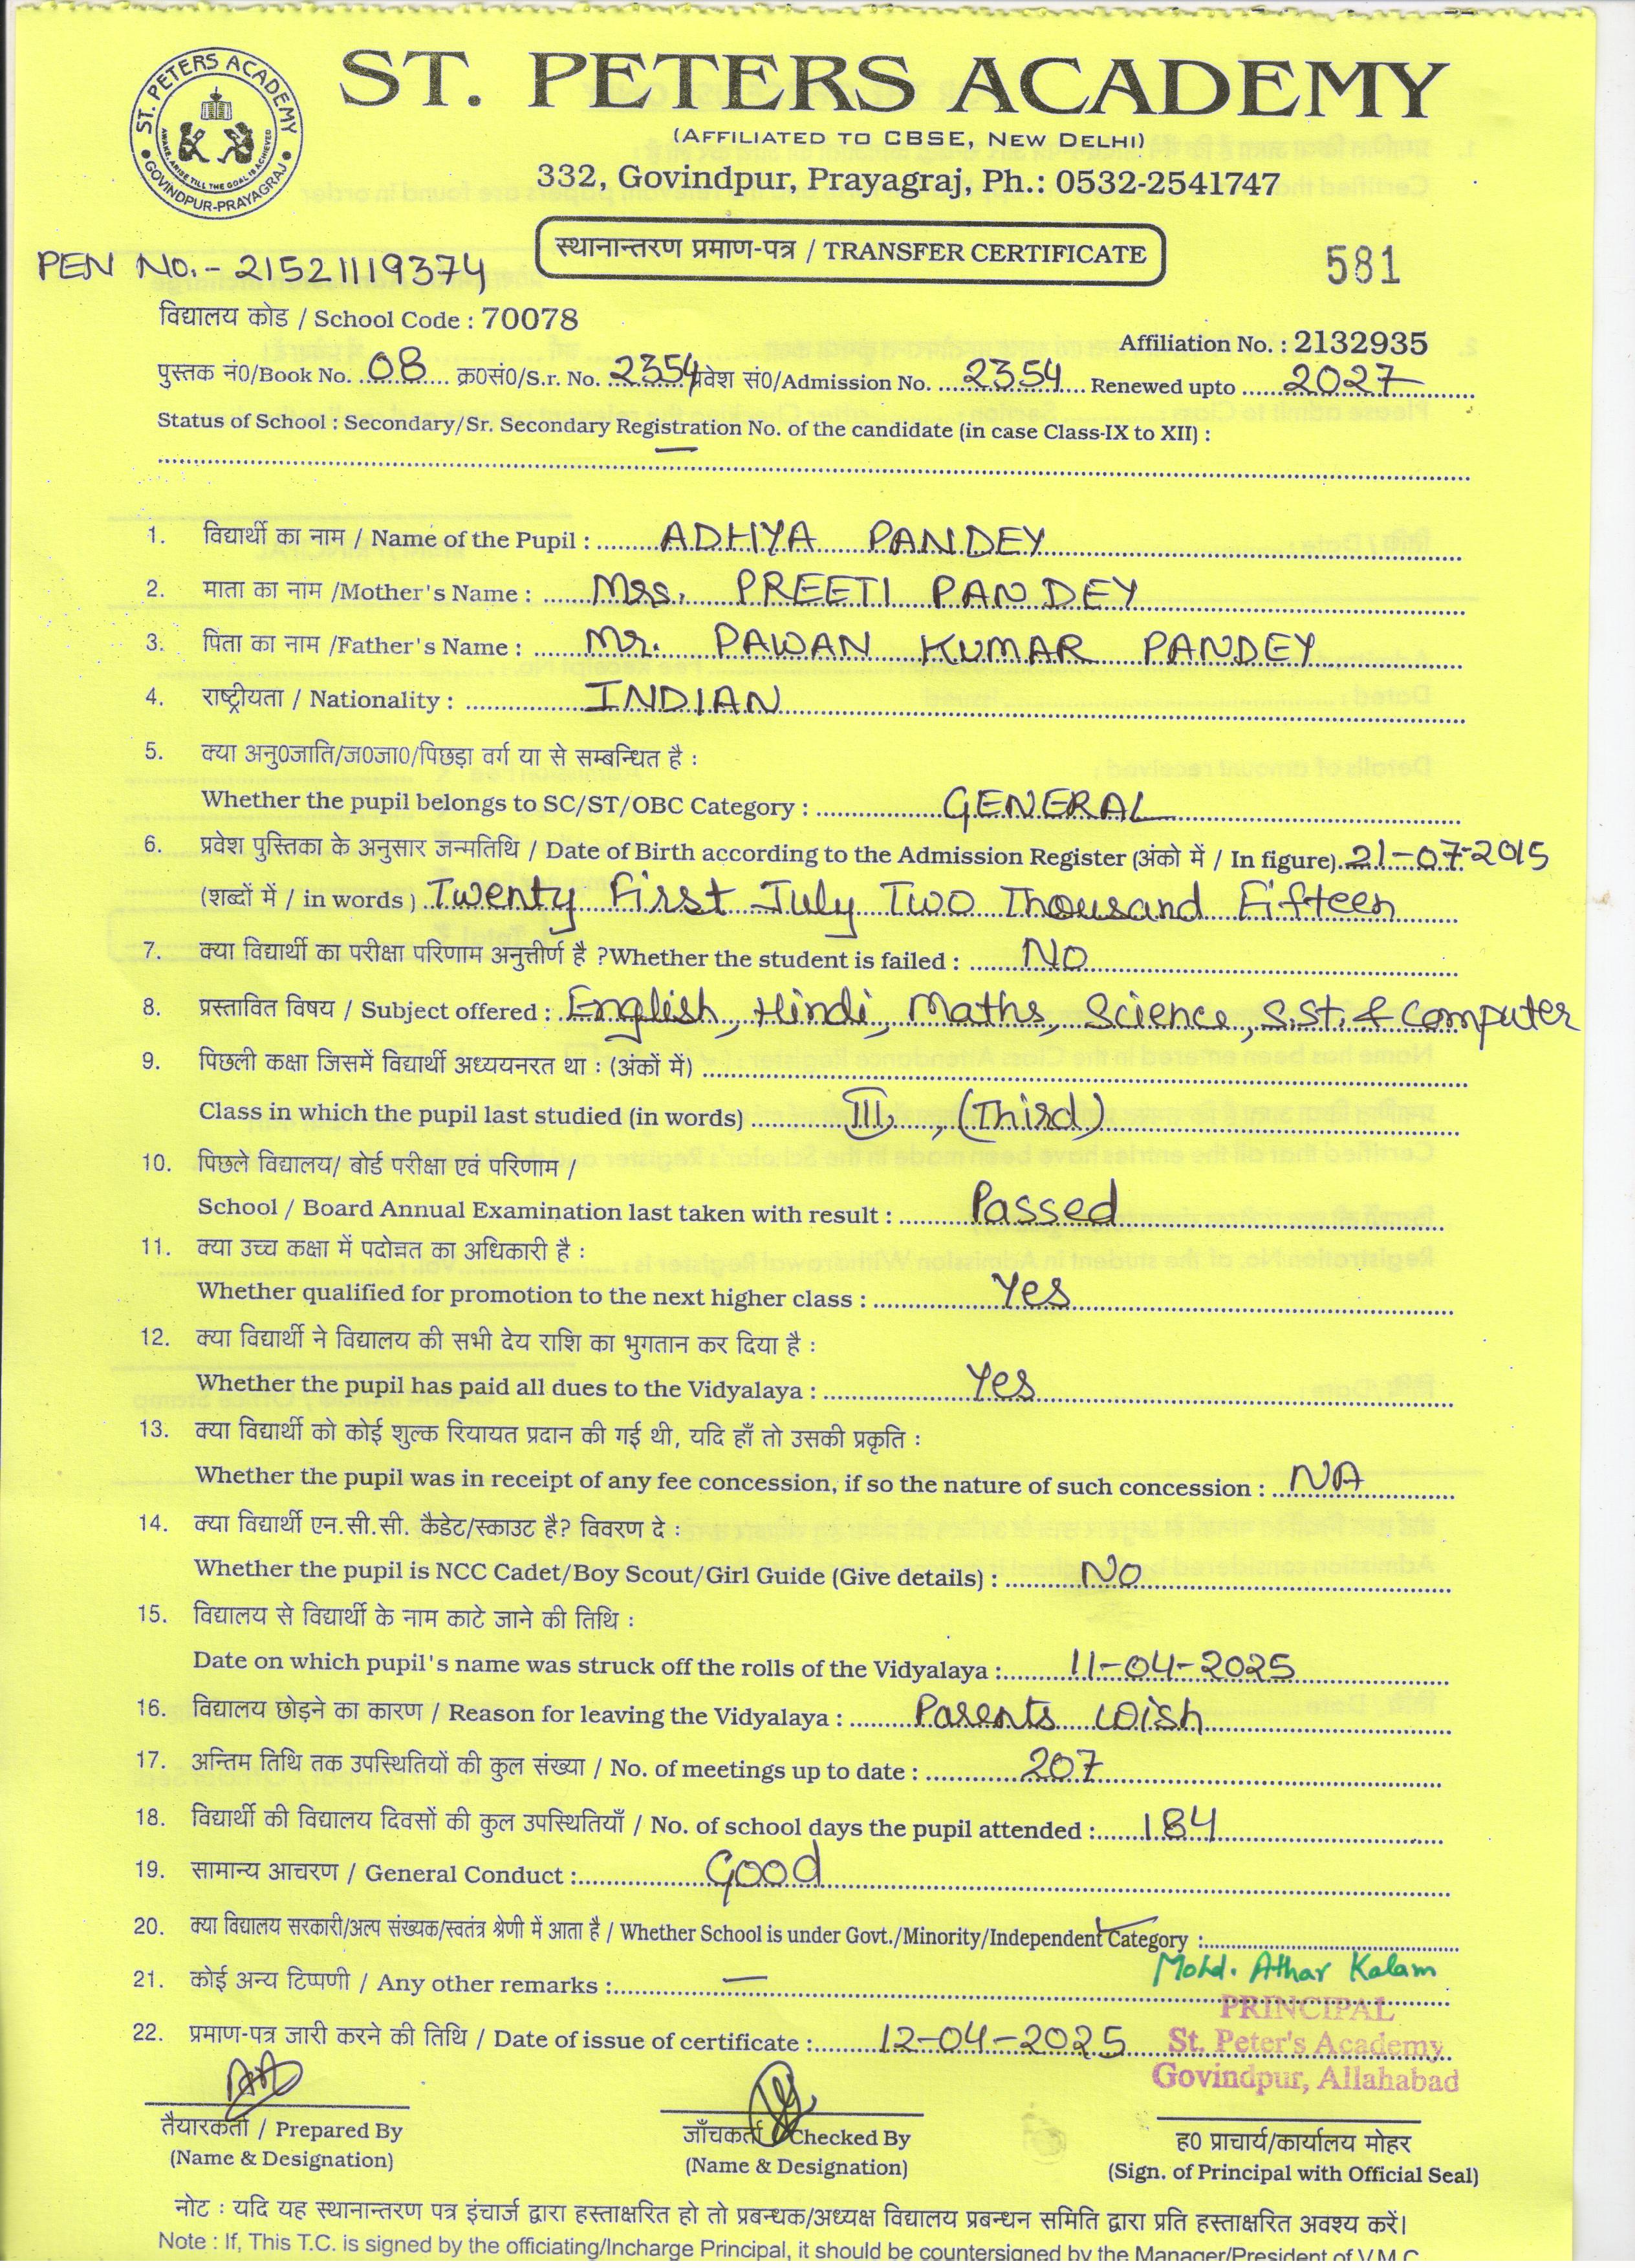 ST. PETERS ACADEMY
GOVINDPUR-PRAYAGRAJ
AWAKE, ARISE TILL THE GOAL IS ACHIEVED
ST. PETERS ACADEMY
(AFFILIATED TO CBSE, NEW DELHI)
332, Govindpur, Prayagraj, Ph.: 0532-2541747
स्थानान्तरण प्रमाण-पत्र / TRANSFER CERTIFICATE
581
PEN NO.- 21521119374
विद्यालय कोड / School Code : 70078
Affiliation No. : 2132935
पुस्तक नं0/Book No. 08 क्र0सं0/S.r. No. 2354 प्रवेश सं0/Admission No. 2354 Renewed upto 2027
Status of School : Secondary/Sr. Secondary Registration No. of the candidate (in case Class-IX to XII) :
—
1. विद्यार्थी का नाम / Name of the Pupil : ADHYA PANDEY
2. माता का नाम /Mother's Name : Mrs. PREETI PANDEY
3. पिता का नाम /Father's Name : Mr. PAWAN KUMAR PANDEY
4. राष्ट्रीयता / Nationality : INDIAN
5. क्या अनु0जाति/ज0जा0/पिछड़ा वर्ग या से सम्बन्धित है :
Whether the pupil belongs to SC/ST/OBC Category : GENERAL
6. प्रवेश पुस्तिका के अनुसार जन्मतिथि / Date of Birth according to the Admission Register (अंको में / In figure). 21-07-2015
(शब्दों में / in words ) Twenty First July Two Thousand Fifteen
7. क्या विद्यार्थी का परीक्षा परिणाम अनुत्तीर्ण है ?Whether the student is failed : NO
8. प्रस्तावित विषय / Subject offered : English, Hindi, Maths, Science, S.St. & Computer
9. पिछली कक्षा जिसमें विद्यार्थी अध्ययनरत था : (अंकों में)
Class in which the pupil last studied (in words) III, (Third)
10. पिछले विद्यालय/ बोर्ड परीक्षा एवं परिणाम /
School / Board Annual Examination last taken with result : Passed
11. क्या उच्च कक्षा में पदोन्नत का अधिकारी है :
Whether qualified for promotion to the next higher class : Yes
12. क्या विद्यार्थी ने विद्यालय की सभी देय राशि का भुगतान कर दिया है :
Whether the pupil has paid all dues to the Vidyalaya : Yes
13. क्या विद्यार्थी को कोई शुल्क रियायत प्रदान की गई थी, यदि हाँ तो उसकी प्रकृति :
Whether the pupil was in receipt of any fee concession, if so the nature of such concession : NA
14. क्या विद्यार्थी एन.सी.सी. कैडेट/स्काउट है? विवरण दे :
Whether the pupil is NCC Cadet/Boy Scout/Girl Guide (Give details) : No
15. विद्यालय से विद्यार्थी के नाम काटे जाने की तिथि :
Date on which pupil's name was struck off the rolls of the Vidyalaya : 11-04-2025
16. विद्यालय छोड़ने का कारण / Reason for leaving the Vidyalaya : Parents Wish
17. अन्तिम तिथि तक उपस्थितियों की कुल संख्या / No. of meetings up to date : 207
18. विद्यार्थी की विद्यालय दिवसों की कुल उपस्थितियाँ / No. of school days the pupil attended : 184
19. सामान्य आचरण / General Conduct : Good
20. क्या विद्यालय सरकारी/अल्प संख्यक/स्वतंत्र श्रेणी में आता है / Whether School is under Govt./Minority/Independent Category :
Mohd. Athar Kalam
21. कोई अन्य टिप्पणी / Any other remarks : —
PRINCIPAL
22. प्रमाण-पत्र जारी करने की तिथि / Date of issue of certificate : 12-04-2025
St. Peter's Academy
Govindpur, Allahabad
तैयारकर्ता / Prepared By
(Name & Designation)
जाँचकर्ता / Checked By
(Name & Designation)
ह0 प्राचार्य/कार्यालय मोहर
(Sign. of Principal with Official Seal)
नोट : यदि यह स्थानान्तरण पत्र इंचार्ज द्वारा हस्ताक्षरित हो तो प्रबन्धक/अध्यक्ष विद्यालय प्रबन्धन समिति द्वारा प्रति हस्ताक्षरित अवश्य करें।
Note : If, This T.C. is signed by the officiating/Incharge Principal, it should be countersigned by the Manager/President of V.M.C.